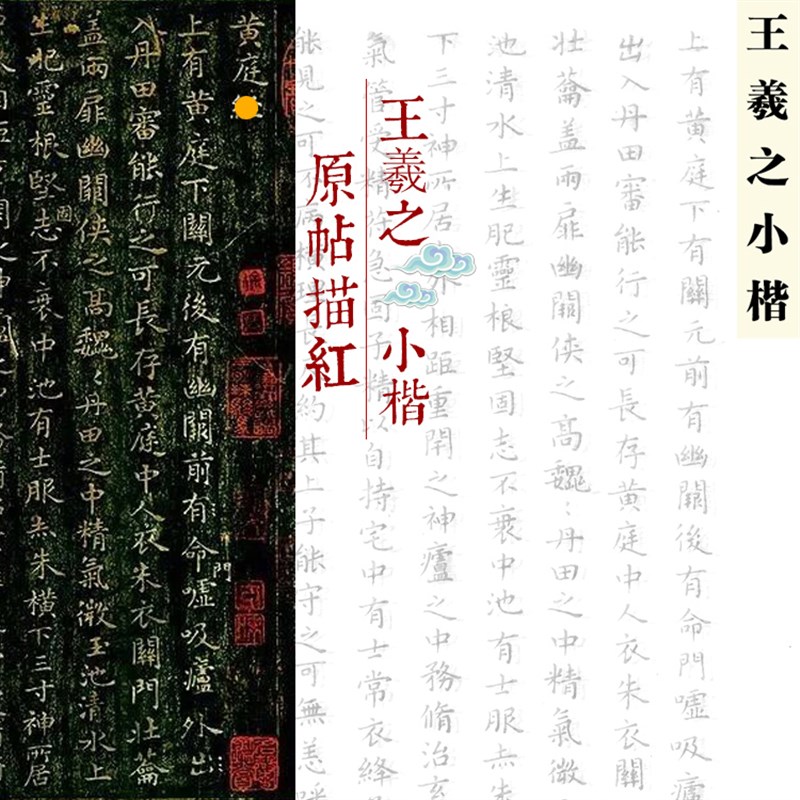 王羲之小楷
上有黄庭下有關元前有幽闕後有命門噓吸廬
出入丹田審能行之可長存黄庭中人衣朱衣關
壮籥盖兩扉幽闕俠之髙魏〻丹田之中精氣微
池清水上生肥靈根堅固志不衰中池有士服赤朱
下三寸神所居相距重閇之神廬之中務脩治玄
王羲之小楷
氣管受精符急固子精以自持宅中有士常衣絳
原帖描紅
能見之可不病橫理長尺約其上子能守之可無恙呼
黄庭
上有黄庭下關元後有幽闕前有命門噓吸廬外出
入丹田審能行之可長存黄庭中人衣朱衣關門壮籥
盖兩扉幽闕俠之髙魏〻丹田之中精氣微玉池清水上
生肥靈根堅固志不衰中池有士服赤朱橫下三寸神所居